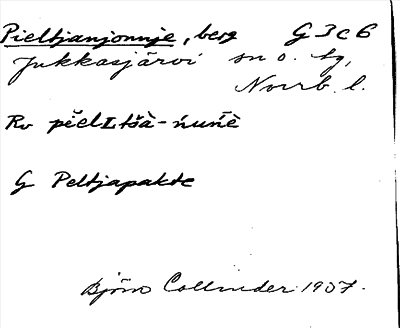 Pieltjanjonnje, berg G 3 c 6
Jukkasjärvi sn o. tg,
Norrb. l.
Rv pĕelLtšà-ńuńè
G Peltjapakte
Björn Collinder 1937.